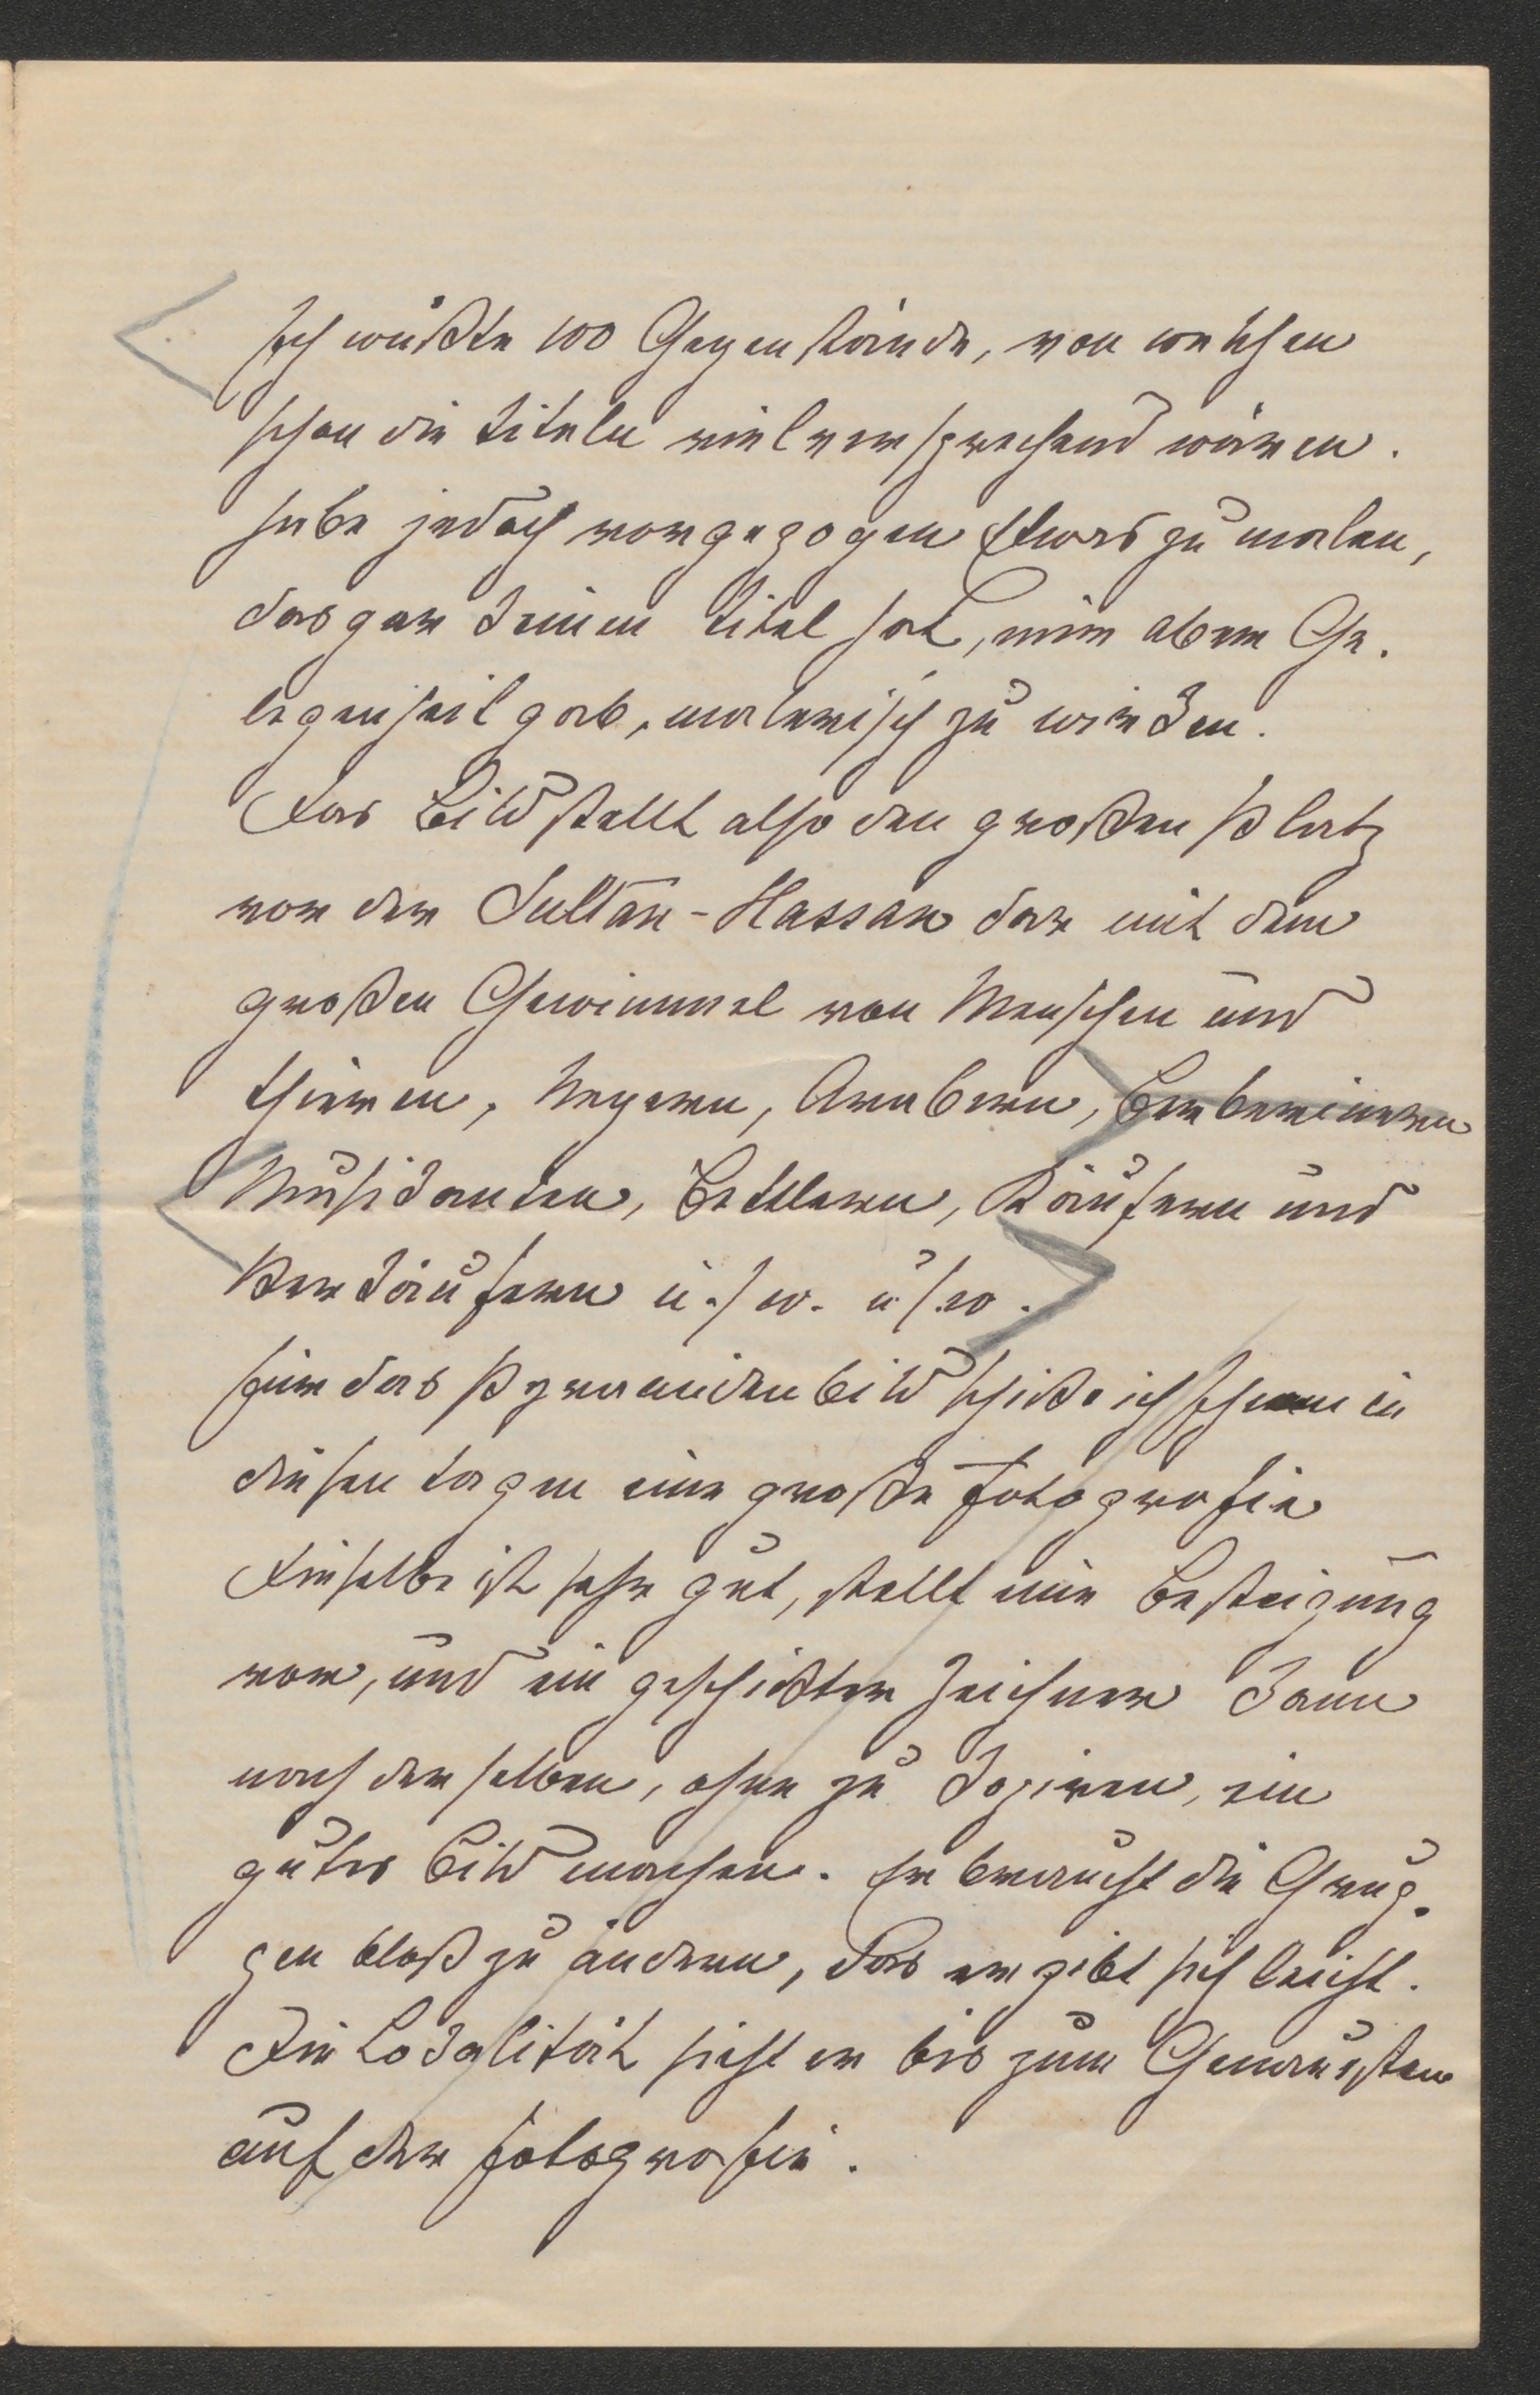 Ich wüßte 100 Gegenstände, von welchen
schon die Titeln vielversprechend wären.
habe jedoch vorgezogen Etwas zu malen,
das gar keinen Titel hat, mir aber Ge-
legenheit gab, malerisch zu wirken.
Das Bild stellt also den großen Platz
vor der Sultan-Hassan dar mit dem
großen Gewimmel von Menschen und
Thieren, Negern, Arabern, Berberinern
Musikanten, Bettlern, Käufern und
Verkäufern u.s.w. u.s.w.
Für das Pyramidenbild schicke ich Ihnen in
diesen Tagen eine große Fotografie
Dieselbe ist sehr gut, stellt eine Besteigung
vor, und ein geschickter Zeichner kann
nach derselben, ohne zu kopiren, ein
gutes Bild machen. Er braucht die Grup-
pen bloß zu ändern, das ergibt sich leicht.
Die Lokalität sieht er bis zum Genauesten
auf der Fotografie.